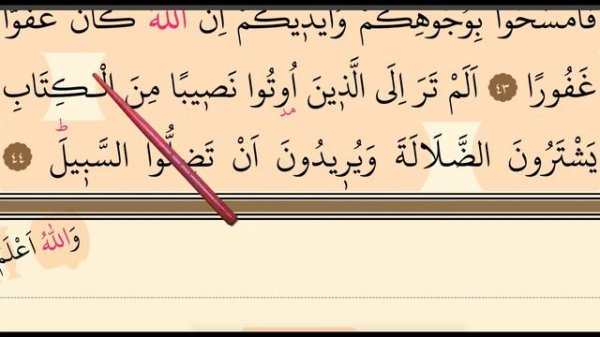 فَامْسَحُوا بِوُجُوهِكُمْ وَاَيْدٖيكُمْ اِنَّ اللّٰهَ كَانَ عَفُوًّا
غَفُورًا ﴿٤٣﴾ اَلَمْ تَرَ اِلَى الَّذٖينَ اُو۫تُوا نَصٖيبًا مِنَ الْكِتَابِ
مد
يَشْتَرُونَ الضَّلَالَةَ وَيُرٖيدُونَ اَنْ تَضِلُّوا السَّبٖيلَ ط ﴿٤٤﴾
وَاللّٰهُ اَعْلَمُ